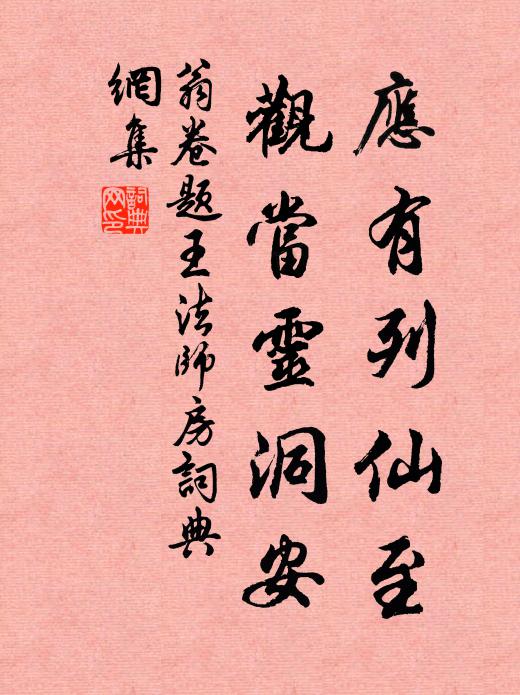 應有列仙至
觀當靈洞安
翁卷題王法師房詞典
網集
詞典
网印